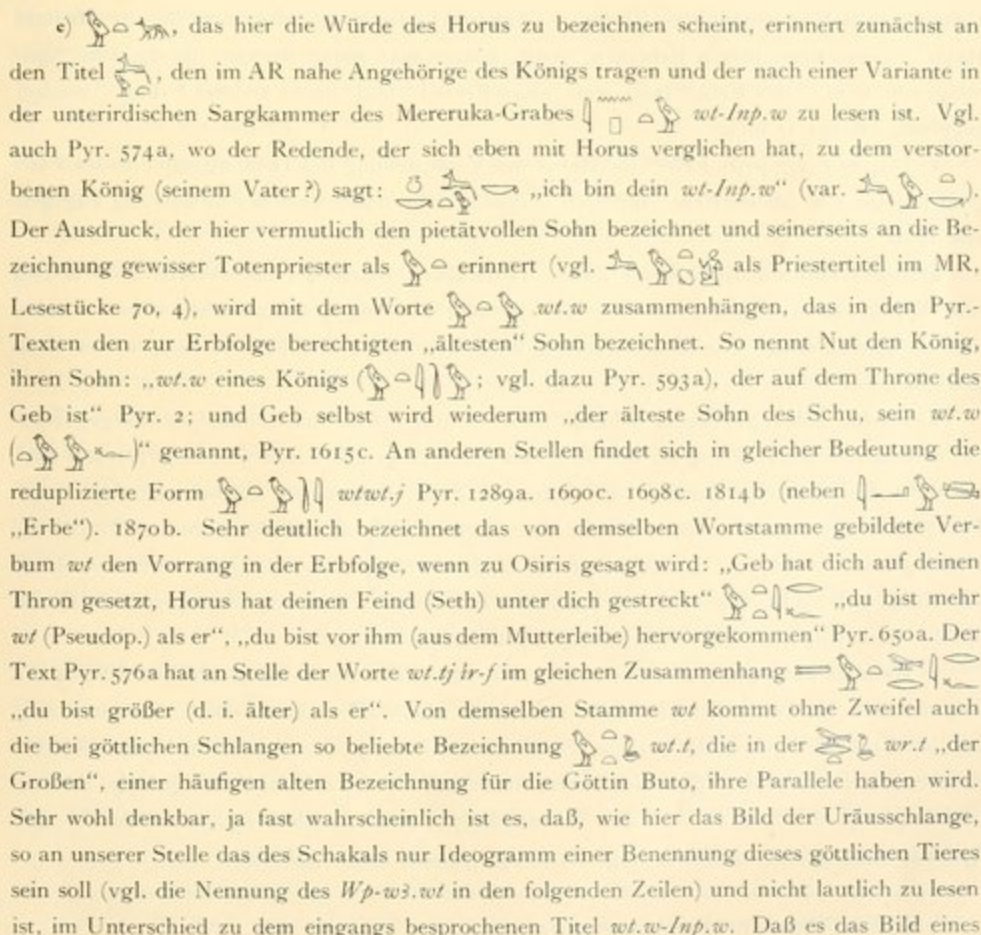 c) 𓅱𓏏𓃢, das hier die Würde des Horus zu bezeichnen scheint, erinnert zunächst an
den Titel, den im AR nahe Angehörige des Königs tragen und der nach einer Variante in
der unterirdischen Sargkammer des Mereruka-Grabes 𓇋𓈖𓊪𓏏𓅱 wt-Inp.w zu lesen ist. Vgl.
auch Pyr. 574a, wo der Redende, der sich eben mit Horus verglichen hat, zu dem verstor-
benen König (seinem Vater?) sagt: „ich bin dein wt-Inp.w“ (var.).
Der Ausdruck, der hier vermutlich den pietätvollen Sohn bezeichnet und seinerseits an die Be-
zeichnung gewisser Totenpriester als 𓅱𓏏 erinnert (vgl. als Priestertitel im MR,
Lesestücke 70, 4), wird mit dem Worte 𓅱𓏏𓅱 wt.w zusammenhängen, das in den Pyr.-
Texten den zur Erbfolge berechtigten „ältesten“ Sohn bezeichnet. So nennt Nut den König,
ihren Sohn: „wt.w eines Königs (; vgl. dazu Pyr. 593a), der auf dem Throne des
Geb ist“ Pyr. 2; und Geb selbst wird wiederum „der älteste Sohn des Schu, sein wt.w
(𓏏𓅱𓅱𓆑)“ genannt, Pyr. 1615c. An anderen Stellen findet sich in gleicher Bedeutung die
reduplizierte Form wtwt.j Pyr. 1289a. 1690c. 1698c. 1814b (neben
„Erbe“). 1870b. Sehr deutlich bezeichnet das von demselben Wortstamme gebildete Ver-
bum wt den Vorrang in der Erbfolge, wenn zu Osiris gesagt wird: „Geb hat dich auf deinen
Thron gesetzt, Horus hat deinen Feind (Seth) unter dich gestreckt“ 𓅱𓏏𓇋𓂋𓆑 „du bist mehr
wt (Pseudop.) als er“, „du bist vor ihm (aus dem Mutterleibe) hervorgekommen“ Pyr. 650a. Der
Text Pyr. 576a hat an Stelle der Worte wt.tj ir-f im gleichen Zusammenhang
„du bist größer (d. i. älter) als er“. Von demselben Stamme wt kommt ohne Zweifel auch
die bei göttlichen Schlangen so beliebte Bezeichnung wt.t, die in der wr.t „der
Großen“, einer häufigen alten Bezeichnung für die Göttin Buto, ihre Parallele haben wird.
Sehr wohl denkbar, ja fast wahrscheinlich ist es, daß, wie hier das Bild der Uräusschlange,
so an unserer Stelle das des Schakals nur Ideogramm einer Benennung dieses göttlichen Tieres
sein soll (vgl. die Nennung des Wp-w3.wt in den folgenden Zeilen) und nicht lautlich zu lesen
ist, im Unterschied zu dem eingangs besprochenen Titel wt.w-Inp.w. Daß es das Bild eines